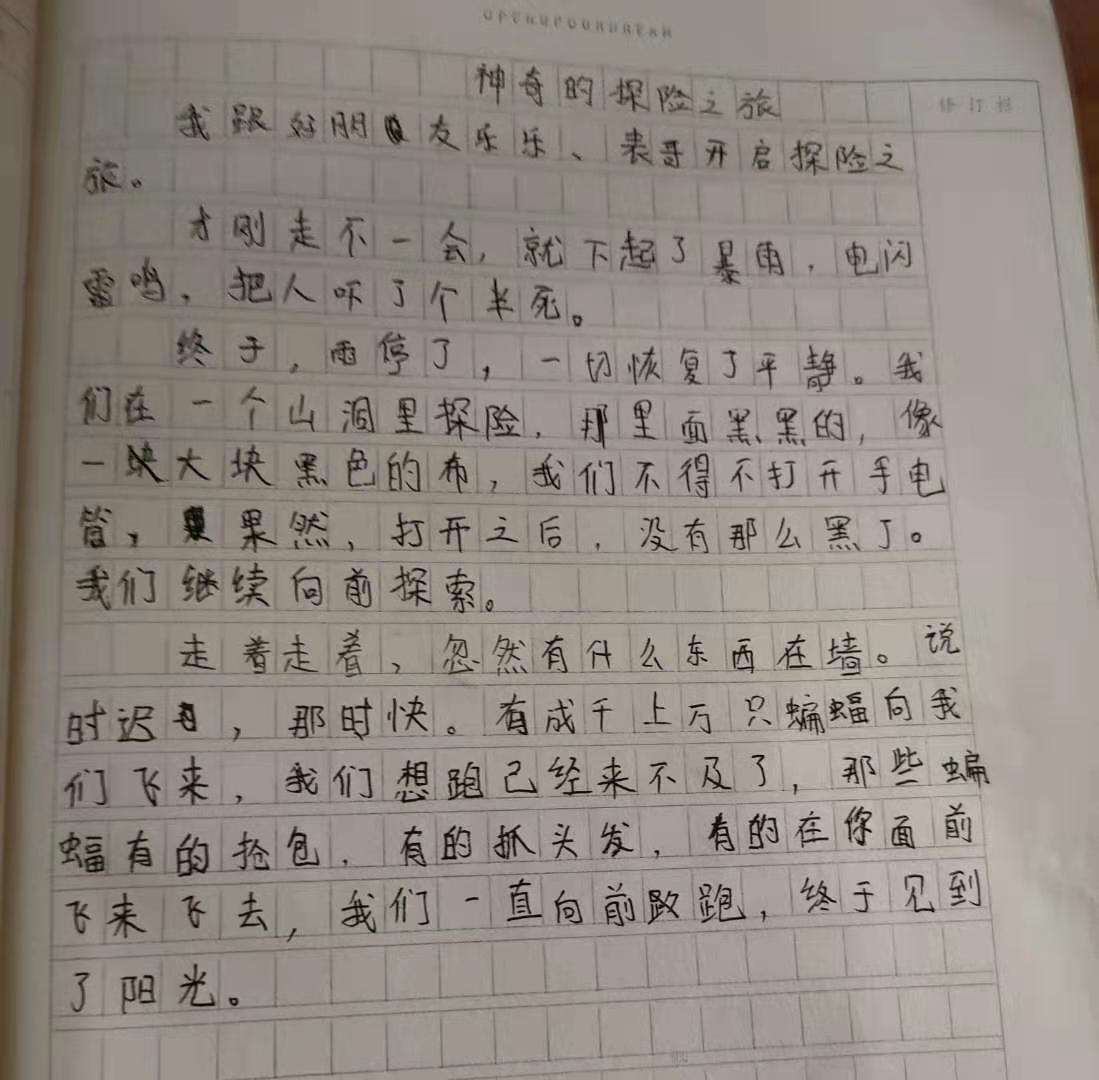 OPENUPOURDREAM
修订栏
神奇的探险之旅
我跟好朋友乐乐、表哥开启探险之
旅。
才刚走不一会,就下起了暴雨,电闪
雷鸣,把人吓了个半死。
终于,雨停了,一切恢复了平静。我
们在一个山洞里探险,那里面黑黑的,像
一块大块黑色的布,我们不得不打开手电
筒,果然,打开之后,没有那么黑了。
我们继续向前探索。
走着走着,忽然有什么东西在墙。说
时迟,那时快。有成千上万只蝙蝠向我
们飞来,我们想跑已经来不及了,那些蝙
蝠有的抢包,有的抓头发,有的在你面前
飞来飞去,我们一直向前跑,终于见到
了阳光。